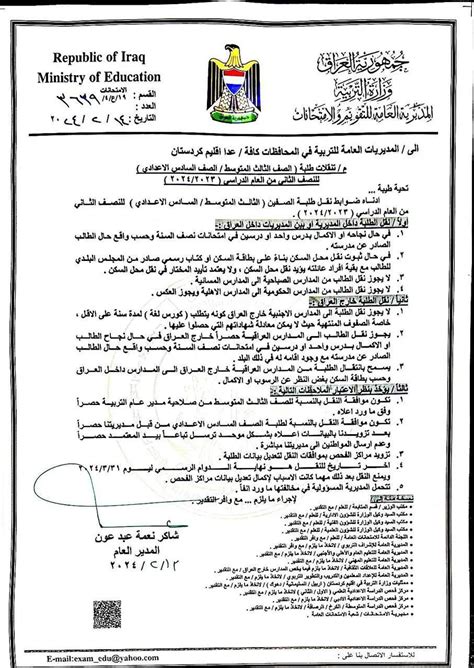 Republic of Iraq
Ministry of Education
جمهورية العراق
وزارة التربية
المديرية العامة للتقويم والامتحانات
القسم : الامتحانات
العدد : ١٩/ع/٤/٣٦٢٩
التاريخ: ٢٠٢٤/٢/١٤
الى / المديريات العامة للتربية في المحافظات كافة / عدا اقليم كردستان
م/ تنقلات طلبة ( الصف الثالث المتوسط/ الصف السادس الاعدادي )
للنصف الثاني من العام الدراسي ( ٢٠٢٤/٢٠٢٣ )
تحية طيبة ...
ادناه ضوابط نقل طلبة الصفين ( الثالث المتوسط/ السادس الاعدادي ) للنصف الثاني
من العام الدراسي ( ٢٠٢٤/٢٠٢٣ )
اولاً/ نقل الطلبة داخل المديرية او بين المديريات داخل العراق :
١. في حال نجاحه او الاكمال بدرس واحد او درسين في امتحانات نصف السنة وحسب واقع حال الطالب
الصادر عن مدرسته .
٢. في حال ثبوت نقل محل السكن بناءً على بطاقة السكن او كتاب رسمي صادر من المجلس البلدي
للطالب مع بقية أفراد عائلته يؤيد نقل محل السكن ، ولا يعتمد تأييد المختار في نقل محل السكن .
٣. لا يجوز نقل الطالب من المدارس الصباحية الى المدارس المسائية .
٤. لا يجوز نقل الطالب من المدارس الحكومية الى المدارس الاهلية ويجوز العكس .
ثانياً/ نقل الطلبة خارج العراق :
١. لا يجوز نقل الطلبة الى المدارس الاجنبية خارج العراق كونه يتطلب ( كورس لغة ) لمدة سنة على الاقل ،
خاصة الصفوف المنتهية حيث لا يمكن معادلة شهاداتهم التي حصلوا عليها .
٢. يجوز نقل الطلبة الى المدارس العراقية حصراً خارج العراق في حال نجاح الطالب
او الاكمال بدرس واحد او درسين في امتحانات نصف السنة وحسب واقع حال الطالب
الصادر عن مدرسته مع وجود اقامه له في ذلك البلد .
٣. يسمح بانتقال الطلبة من المدارس العراقية خارج العراق الى المدارس داخل العراق
وحسب بطاقة السكن بغض النظر عن الرسوب او الاكمال .
ثالثاً / يؤخذ بنظر الاعتبار الملاحظات التالية :
١. تكون موافقة النقل بالنسبة للصف الثالث المتوسط من صلاحية مدير عام التربية حصراً
وفق ما ورد اعلاه .
٢. تكون موافقة النقل بالنسبة لطلبة الصف السادس الاعدادي من قبل مديريتنا حصراً
بعد تزويدنا بالبيانات اعلاه بشكل موحد ترسل تباعاً بيد المعتمد حصراً
وعدم ارسال المواطنين الى مديريتنا مباشرة .
٣. تزويد مراكز الفحص بموافقات النقل لتعديل بيانات الطلبة .
٤. اخر تاريخ للنقل هو نهاية الدوام الرسمي ليوم ٢٠٢٤/٣/٣١
ويمنع النقل بعد ذلك مهما كانت الاسباب لإكمال تعديل بيانات مراكز الفحص .
٥. تتحمل المديرية المسؤولية في مخالفتها ما ورد انفاً .
لإجراء ما يلزم ... مع وافر التقدير .
شاكر نعمة عبد عون
المدير العام
٢٠٢٤/٢/١٣
للاستفسار الاتصال بنا على :
E-mail:exam_edu@yahoo.com